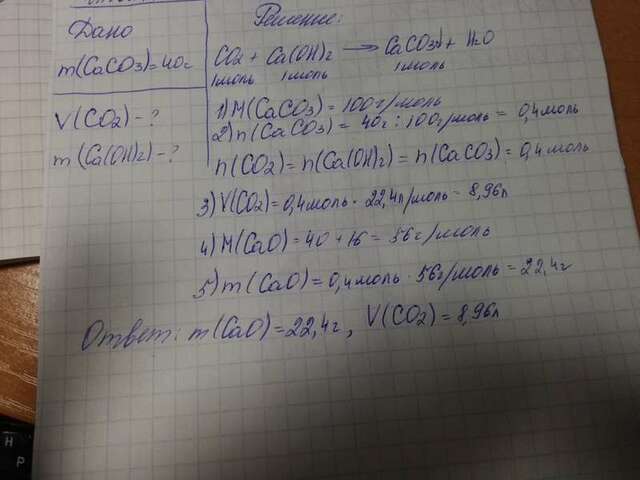 Дано
m(CaCO3)=40г
V(CO2)-?
m(Ca(OH)2)-?
Решение:
CO2 + Ca(OH)2 → CaCO3↓ + H2O
1моль 1моль 1моль
1) M(CaCO3) = 100г/моль
2) n(CaCO3) = 40г : 100г/моль = 0,4моль
n(CO2) = n(Ca(OH)2) = n(CaCO3) = 0,4моль
3) V(CO2) = 0,4моль · 22,4л/моль = 8,96л
4) M(CaO) = 40 + 16 = 56г/моль
5) m(CaO) = 0,4моль · 56г/моль = 22,4г
Ответ: m(CaO) = 22,4г, V(CO2) = 8,96л
Н
Р